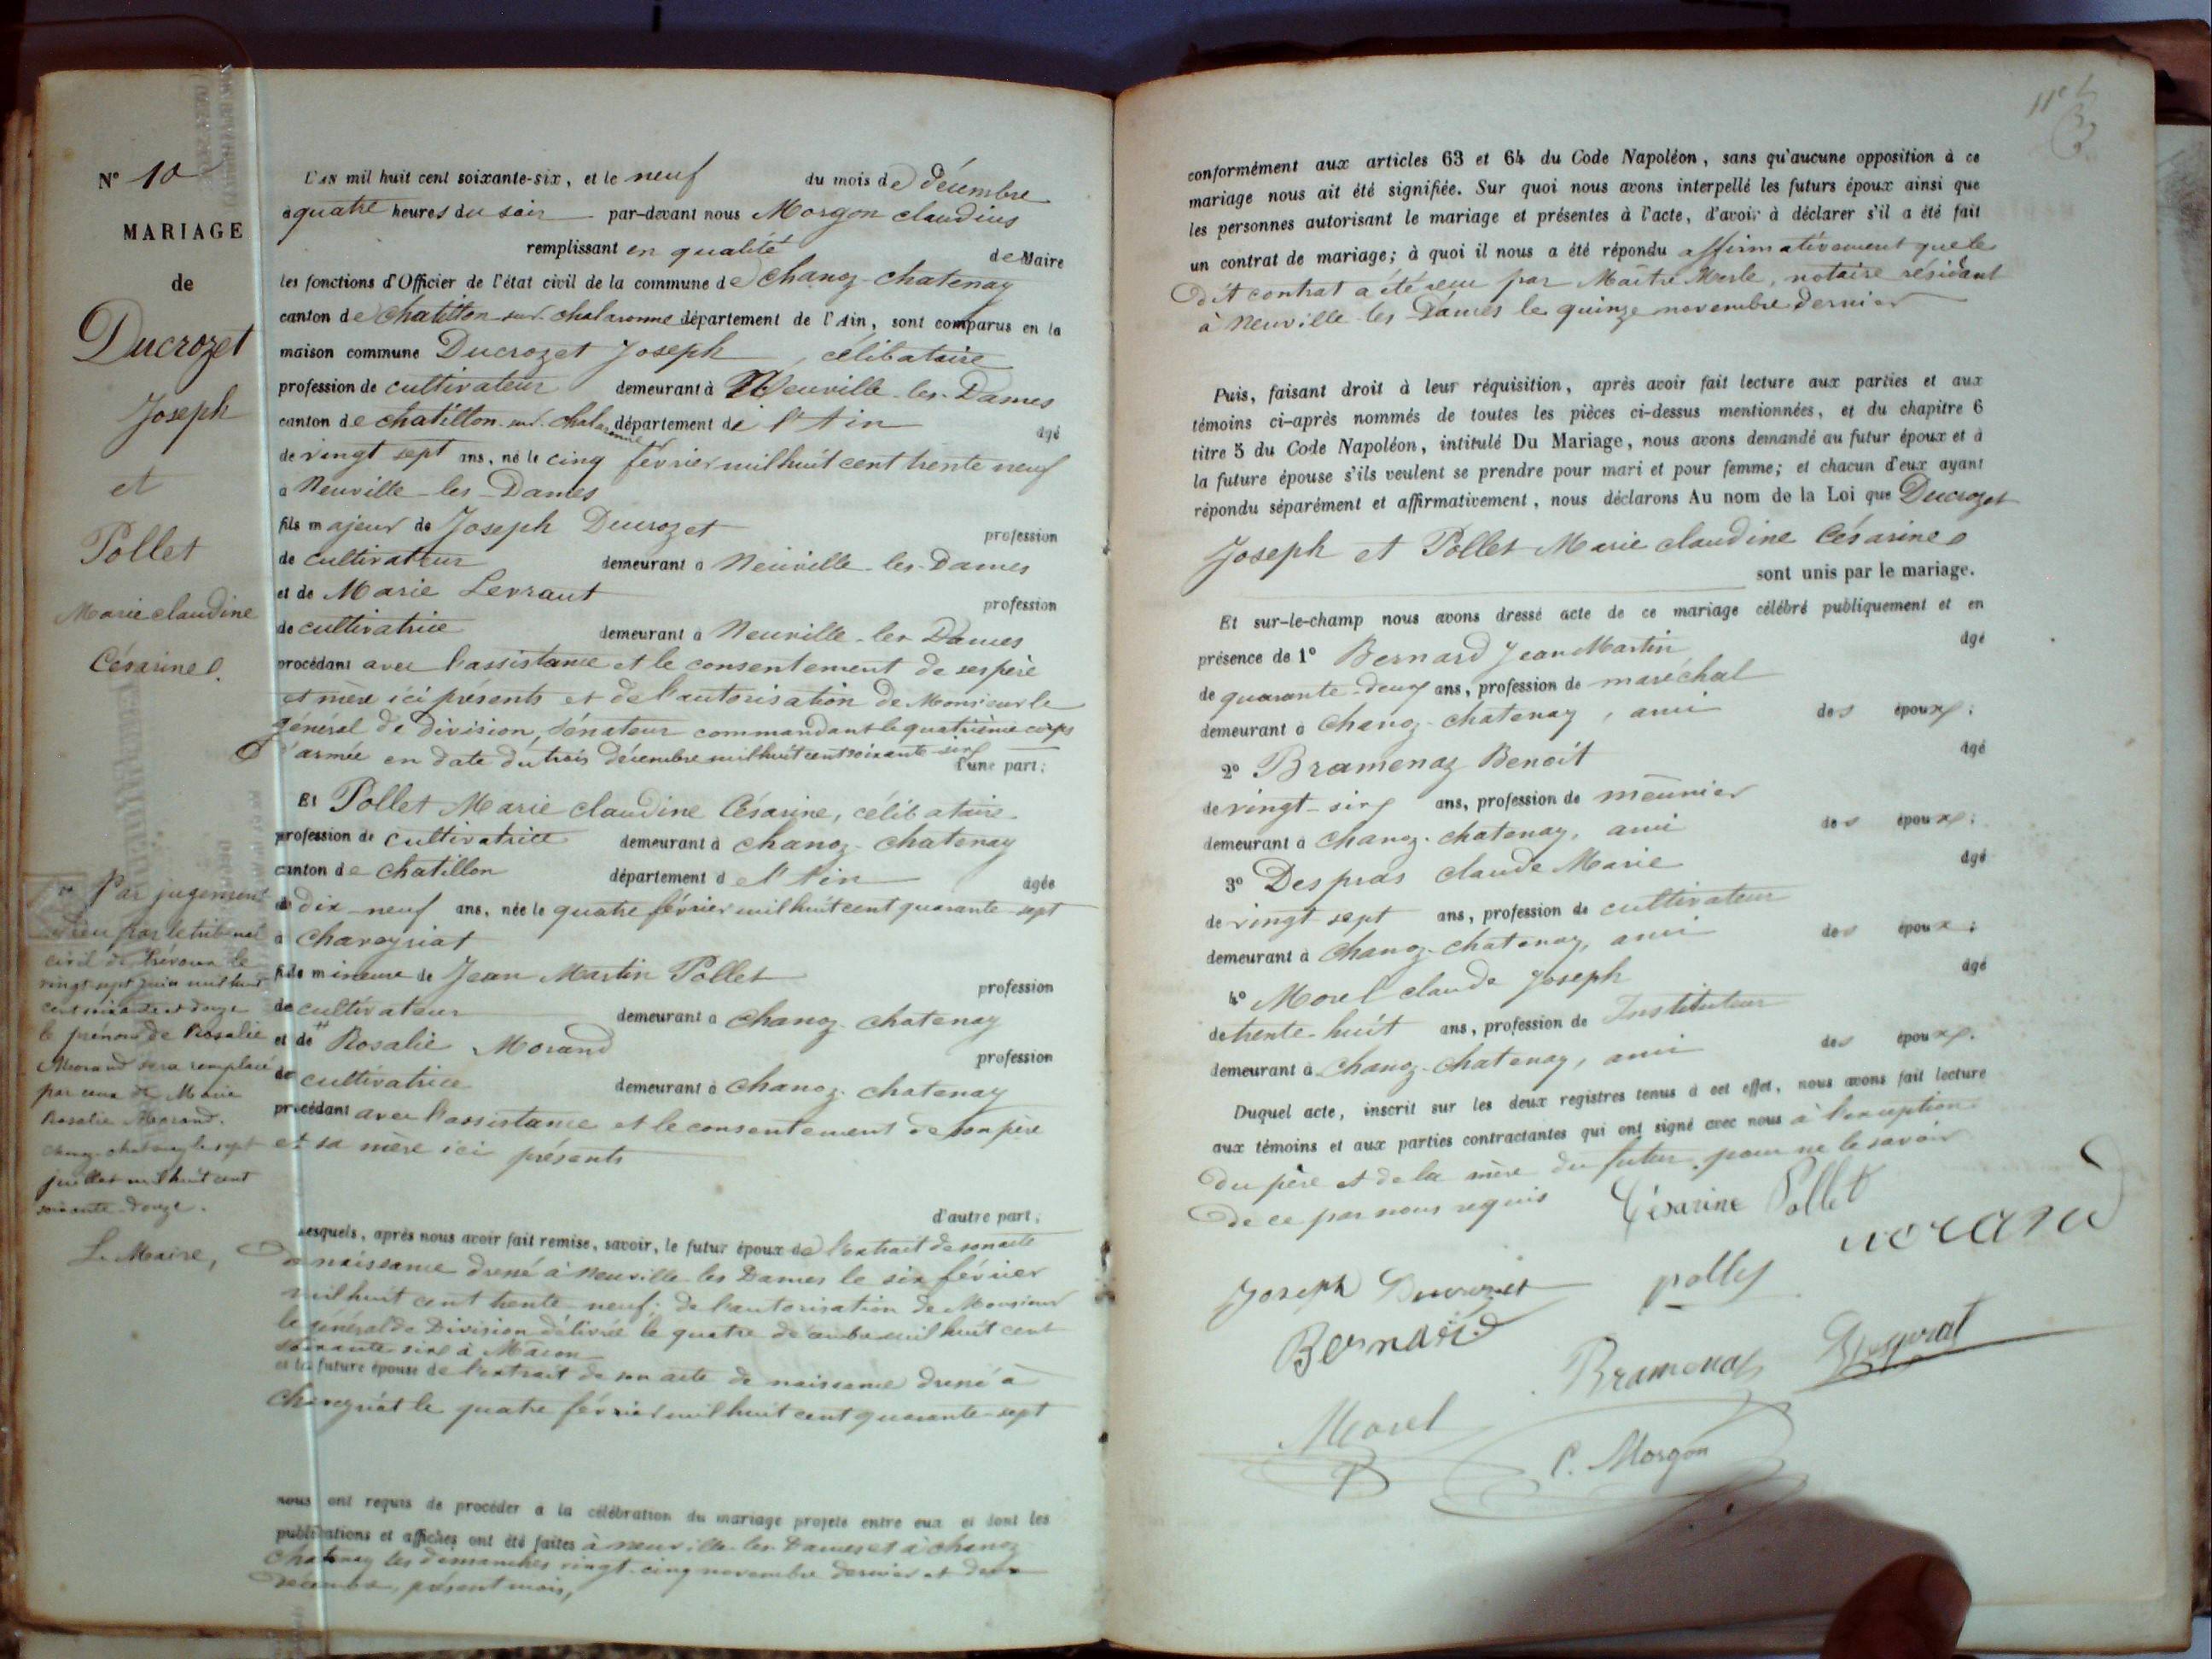 N° 10
MARIAGE
de
Ducrozet
Joseph
et
Pollet
Marie claudine
Césarine.
Par jugement
rendu par le tribunal
civil de Trévoux le
vingt-sept juin mil huit
cent soixante et douze
le prénom de Rosalie
Morand sera remplacé
par ceux de Marie
Rosalie Morand.
Chanoz-chatenay le sept
juillet mil huit cent
soixante-douze.
Le Maire,
L'AN mil huit cent soixante-six, et le neuf du mois de décembre
à quatre heures du soir par-devant nous Morgon claudius
remplissant en qualité de Maire
les fonctions d'Officier de l'état civil de la commune de Chanoz-chatenay
canton de chatillon-sur-chalaronne département de l'Ain, sont comparus en la
maison commune Ducrozet Joseph, célibataire
profession de cultivateur demeurant à Neuville-les-Dames
canton de chatillon-sur-chalaronne département de l'Ain âgé
de vingt sept ans, né le cinq février mil huit cent trente neuf
à Neuville-les-Dames
fils majeur de Joseph Ducrozet profession
de cultivateur demeurant à Neuville-les-Dames
et de Marie Levraut profession
de cultivatrice demeurant à Neuville-les-Dames
procédant avec l'assistance et le consentement de ses père
et mère ici présents et de l'autorisation de Monsieur le
général de division, sénateur commandant le quatrième corps
d'armée en date du trois décembre mil huit cent soixante-six
d'une part;
Et Pollet Marie claudine Césarine, célibataire
profession de cultivatrice demeurant à chanoz-chatenay
canton de chatillon département de l'Ain âgée
de dix-neuf ans, née le quatre février mil huit cent quarante-sept
à Chaveyriat
fille mineure de Jean Martin Pollet profession
de cultivateur demeurant à chanoz-chatenay
et de Rosalie Morand profession
de cultivatrice demeurant à chanoz-chatenay
procédant avec l'assistance et le consentement de son père
et sa mère ici présents
d'autre part;
Lesquels, après nous avoir fait remise, savoir, le futur époux de l'extrait de son acte
de naissance dressé à Neuville-les-Dames le six février
mil huit cent trente-neuf; de l'autorisation de Monsieur
le général de Division délivrée le quatre décembre mil huit cent
soixante-six à Macon
et la future épouse de l'extrait de son acte de naissance dressé à
Chaveyriat le quatre février mil huit cent quarante-sept
nous ont requis de procéder à la célébration du mariage projeté entre eux et dont les
publications et affiches ont été faites à Neuville-les-Dames et à chanoz
chatenay les dimanches vingt-cinq novembre dernier et deux
décembre, présent mois,
conformément aux articles 63 et 64 du Code Napoléon, sans qu'aucune opposition à ce
mariage nous ait été signifiée. Sur quoi nous avons interpellé les futurs époux ainsi que
les personnes autorisant le mariage et présentes à l'acte, d'avoir à déclarer s'il a été fait
un contrat de mariage; à quoi il nous a été répondu affirmativement que le
dit contrat a été reçu par Maître Merle, notaire résidant
à Neuville-les-Dames le quinze novembre dernier
Puis, faisant droit à leur réquisition, après avoir fait lecture aux parties et aux
témoins ci-après nommés de toutes les pièces ci-dessus mentionnées, et du chapitre 6
titre 5 du Code Napoléon, intitulé Du Mariage, nous avons demandé au futur époux et à
la future épouse s'ils veulent se prendre pour mari et pour femme; et chacun d'eux ayant
répondu séparément et affirmativement, nous déclarons Au nom de la Loi que Ducrozet
Joseph et Pollet Marie claudine Césarine
sont unis par le mariage.
Et sur-le-champ nous avons dressé acte de ce mariage célébré publiquement et en
présence de 1° Bernard Jean Martin âgé
de quarante-deux ans, profession de maréchal
demeurant à chanoz-chatenay, ami des époux;
2° Bramenaz Benoît âgé
de vingt-six ans, profession de meûnier
demeurant à chanoz-chatenay, ami des époux;
3° Despras claude Marie âgé
de vingt sept ans, profession de cultivateur
demeurant à chanoz-chatenay, ami des époux;
4° Morel claude Joseph âgé
de trente-huit ans, profession de Instituteur
demeurant à chanoz-chatenay, ami des époux.
Duquel acte, inscrit sur les deux registres tenus à cet effet, nous avons fait lecture
aux témoins et aux parties contractantes qui ont signé avec nous à l'exception
du père et de la mère du futur pour ne le savoir
de ce par nous requis
Césarine Pollet
morand
Joseph Ducrozet
pollet
Bernard
Bramenaz
Morel
C. Morgon